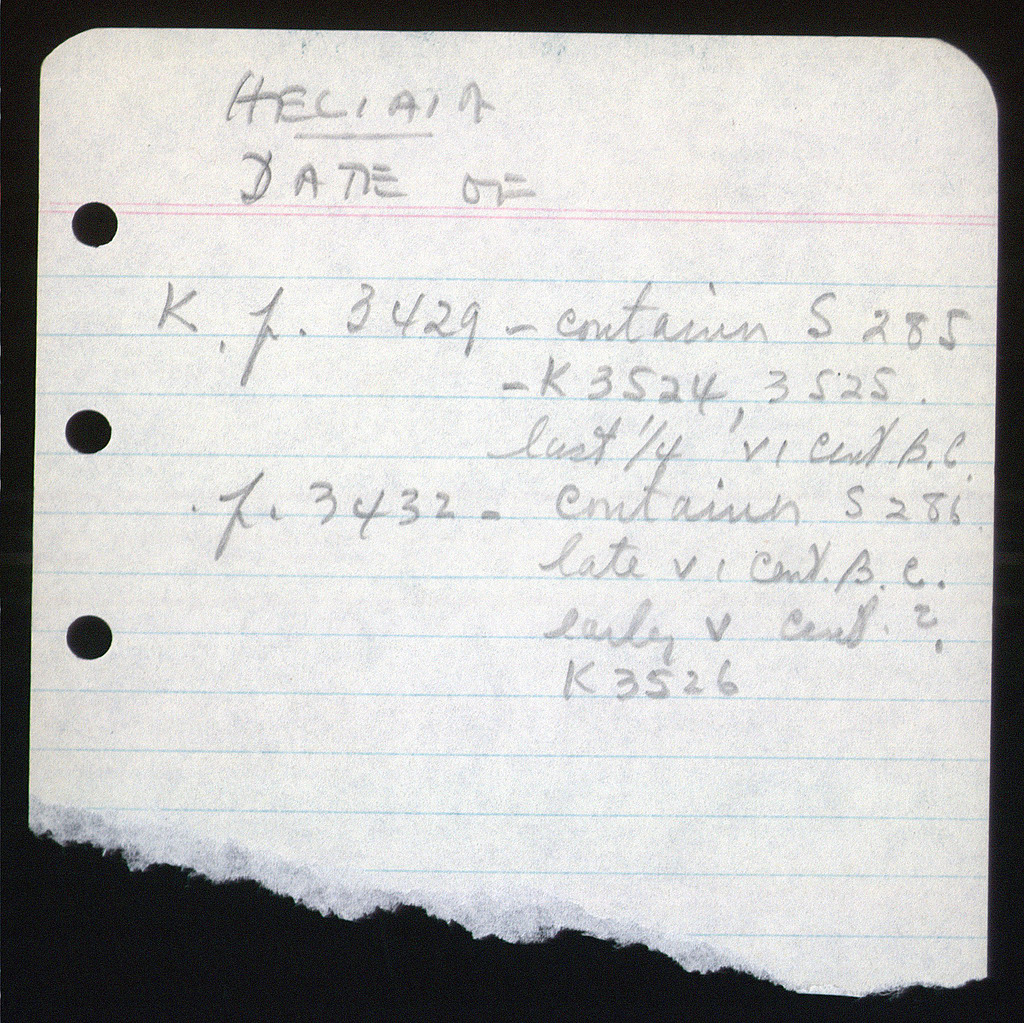 HELIAIA
DATE OF
K. p. 3429 - contains S 285
- K 3524, 3525.
last 1/4 VI cent B.C.
p. 3432 - contains S 286
late VI cent. B.C.
early V cent. ?.
K 3526